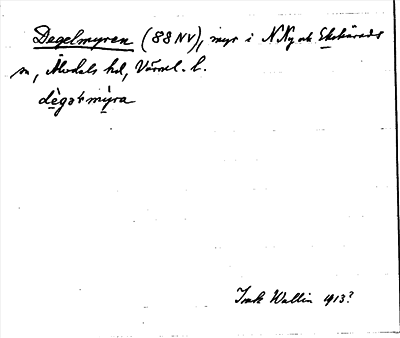 Degelmyren (88 NV), myr i N.Ny och Ekshärads
sn, Älvdals hd, Värml. l.
dègəɫmỳra
Isak Wallin 1913?